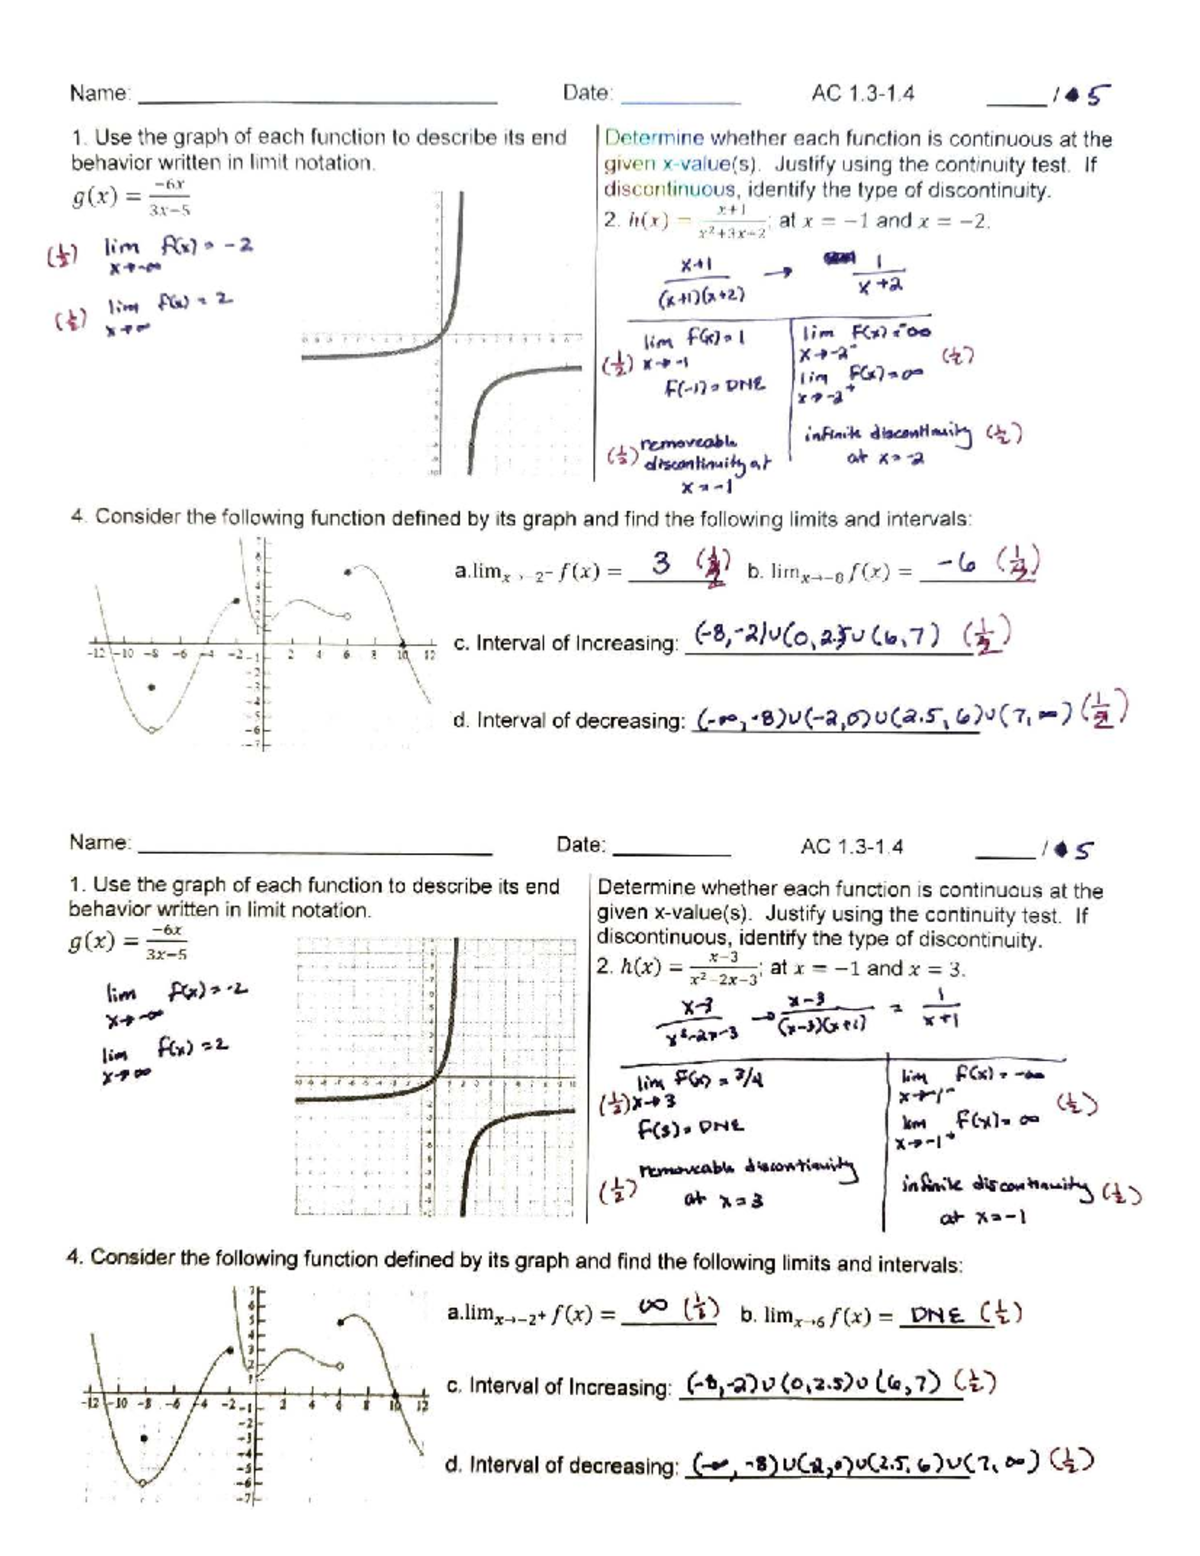 Name: Date: AC 1.3-1.4 / 5
1. Use the graph of each function to describe its end
behavior written in limit notation.
g(x) = -6x / 3x-5
(1/2) lim x→-∞ f(x) = -2
(1/2) lim x→∞ f(x) = 2
Determine whether each function is continuous at the
given x-value(s). Justify using the continuity test. If
discontinuous, identify the type of discontinuity.
2. h(x) = x+1 / x²+3x-2; at x = -1 and x = -2.
x+1 / (x+1)(x+2) → 1 / x+2
(1/2) lim x→-1 f(x) = 1
F(-1) = DNE
(1/2) removeable
discontinuity at
x = -1
lim x→-2⁻ F(x) = -∞ (1/2)
lim x→-2⁺ F(x) = ∞
infinite discontinuity (1/2)
at x = -2
4. Consider the following function defined by its graph and find the following limits and intervals:
-12 -10 -8 -6 -4 -2 2 4 6 8 10 12
a.lim x→-2⁻ f(x) = 3 (1/2) b. lim x→-8 f(x) = -6 (1/2)
c. Interval of Increasing: (-8,-2)∪(0,2.5)∪(6,7) (1/2)
d. Interval of decreasing: (-∞,-8)∪(-2,0)∪(2.5,6)∪(7,∞) (1/2)
Name: Date: AC 1.3-1.4 / 5
1. Use the graph of each function to describe its end
behavior written in limit notation.
g(x) = -6x / 3x-5
lim x→-∞ f(x) = -2
lim x→∞ f(x) = 2
Determine whether each function is continuous at the
given x-value(s). Justify using the continuity test. If
discontinuous, identify the type of discontinuity.
2. h(x) = x-3 / x²-2x-3; at x = -1 and x = 3.
x-3 / x²-2x-3 → x-3 / (x-3)(x+1) = 1 / x+1
(1/2) lim x→3 F(x) = 3/4
F(3) = DNE
(1/2) removeable discontinuity
at x = 3
lim x→-1⁻ f(x) = -∞ (1/2)
lim x→-1⁺ F(x) = ∞
infinite discontinuity (1/2)
at x = -1
4. Consider the following function defined by its graph and find the following limits and intervals:
-12 -10 -8 -6 -4 -2 2 4 6 8 10 12
a.lim x→-2⁺ f(x) = ∞ (1/2) b. lim x→6 f(x) = DNE (1/2)
c. Interval of Increasing: (-8,-2)∪(0,2.5)∪(6,7) (1/2)
d. Interval of decreasing: (-∞,-8)∪(-2,0)∪(2.5,6)∪(7,∞) (1/2)